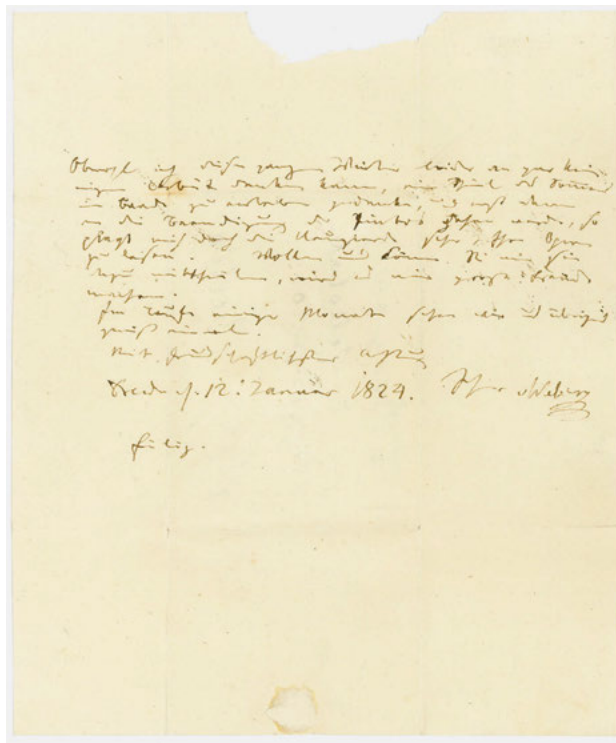 Obwohl ich diesen ganzen Winter leider an gar keine
eigne Arbeit denken kann, ein Theil des Sommers
im Bade zu verleben gedenke, und erst dann
an die Beendigung der Pintos gehen werde, so
plagt mich doch die Neugierde sehr, Ihre Oper
zu lesen. Wollen und können Sie mir sie
dazu mittheilen, wird es mir große Freude
machen.
Im Laufe einiger Monate sehen wir uns übrigens
gewiß einmal.
Mit freundschaftlichster Achtung
Dresden d. 12: Januar 1824. Ihr vWeber